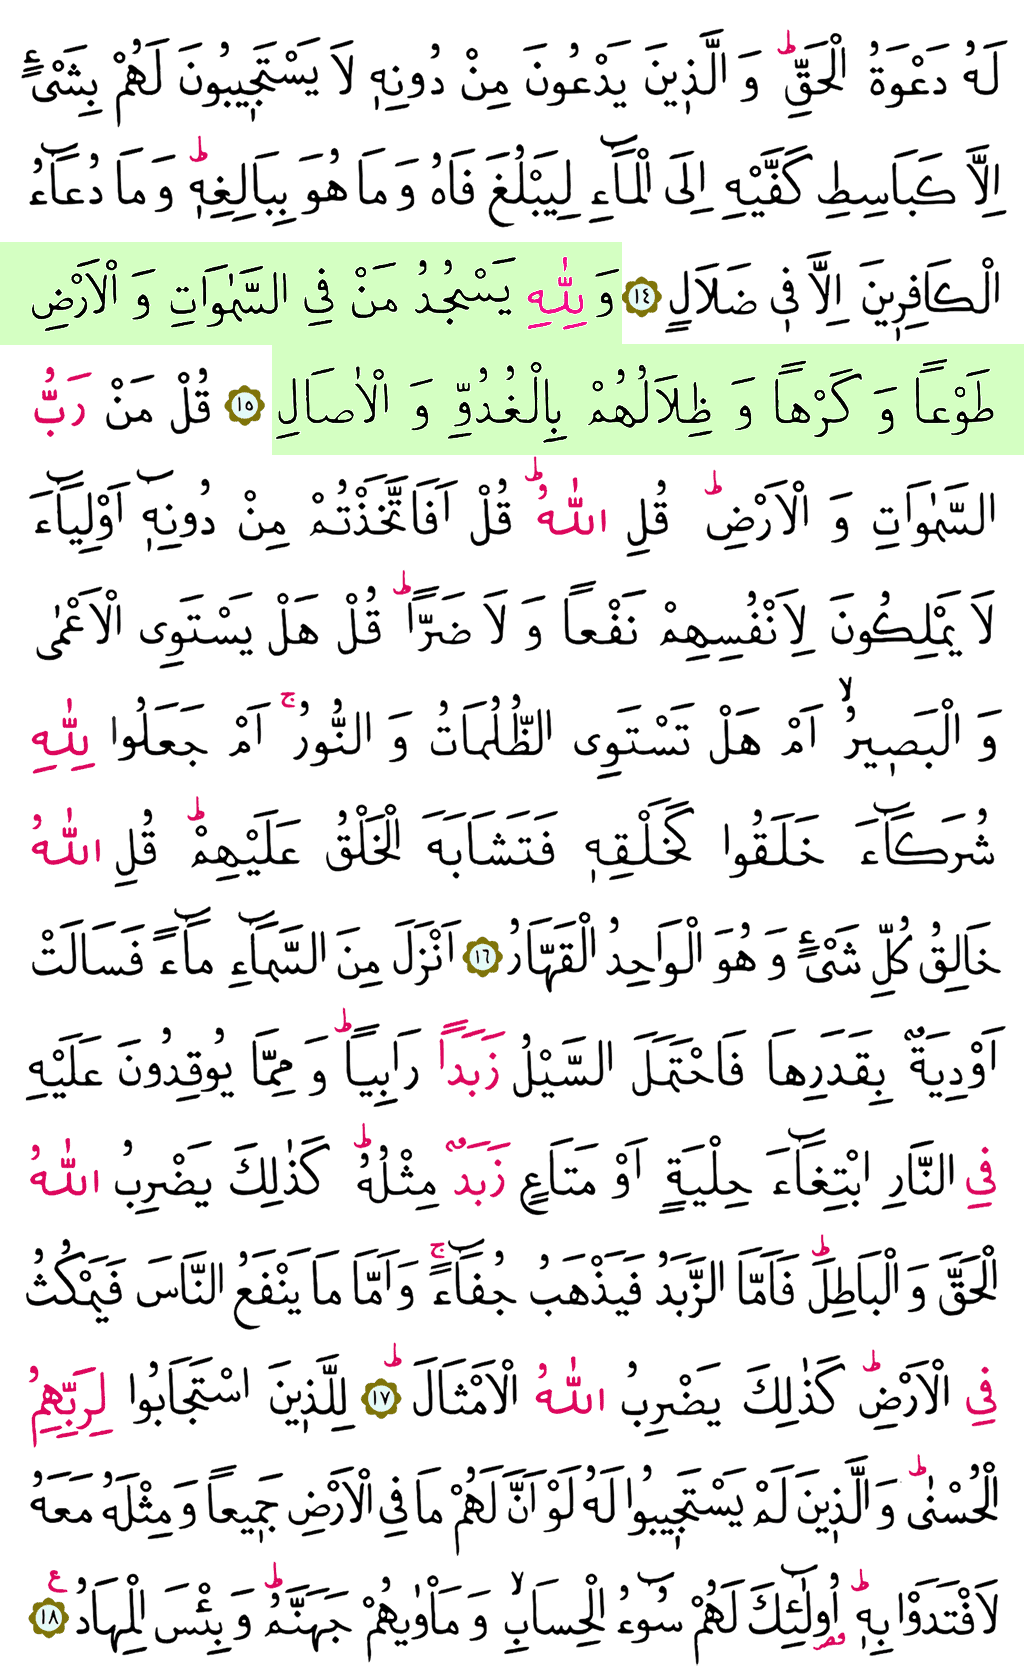 لَهُ دَعْوَةُ الْحَقِّۜ وَ الَّذٖينَ يَدْعُونَ مِنْ دُونِهٖ لَا يَسْتَجٖيبُونَ لَهُمْ بِشَىْءٍ
اِلَّا كَبَاسِطِ كَفَّيْهِ اِلَى الْمَٓاءِ لِيَبْلُغَ فَاهُ وَ مَا هُوَ بِبَالِغِهٖۜ وَ مَا دُعَٓاءُ
الْكَافِرٖينَ اِلَّا فٖى ضَلَالٍ ﴿١٤﴾ وَ لِلّٰهِ يَسْجُدُ مَنْ فِى السَّمٰوَاتِ وَ الْاَرْضِ
طَوْعاً وَ كَرْهاً وَ ظِلَالُهُمْ بِالْغُدُوِّ وَ الْاٰصَالِ ﴿١٥﴾ قُلْ مَنْ رَبُّ
السَّمٰوَاتِ وَ الْاَرْضِۜ قُلِ اللّٰهُۜ قُلْ اَفَاتَّخَذْتُمْ مِنْ دُونِهٖٓ اَوْلِيَٓاءَ
لَا يَمْلِكُونَ لِاَنْفُسِهِمْ نَفْعاً وَ لَا ضَرّاًۜ قُلْ هَلْ يَسْتَوِى الْاَعْمٰى
وَ الْبَصٖيرُۙ اَمْ هَلْ تَسْتَوِى الظُّلُمَاتُ وَ النُّورُۚ اَمْ جَعَلُوا لِلّٰهِ
شُرَكَٓاءَ خَلَقُوا كَخَلْقِهٖ فَتَشَابَهَ الْخَلْقُ عَلَيْهِمْۜ قُلِ اللّٰهُ
خَالِقُ كُلِّ شَىْءٍ وَ هُوَ الْوَاحِدُ الْقَهَّارُ ﴿١٦﴾ اَنْزَلَ مِنَ السَّمَٓاءِ مَٓاءً فَسَالَتْ
اَوْدِيَةٌ بِقَدَرِهَا فَاحْتَمَلَ السَّيْلُ زَبَداً رَابِياًۜ وَ مِمَّا يُوقِدُونَ عَلَيْهِ
فِى النَّارِ ابْتِغَٓاءَ حِلْيَةٍ اَوْ مَتَاعٍ زَبَدٌ مِثْلُهُۜ كَذٰلِكَ يَضْرِبُ اللّٰهُ
الْحَقَّ وَ الْبَاطِلَۜ فَاَمَّا الزَّبَدُ فَيَذْهَبُ جُفَٓاءًۚ وَ اَمَّا مَا يَنْفَعُ النَّاسَ فَيَمْكُثُ
فِى الْاَرْضِۜ كَذٰلِكَ يَضْرِبُ اللّٰهُ الْاَمْثَالَۜ ﴿١٧﴾ لِلَّذٖينَ اسْتَجَابُوا لِرَبِّهِمُ
الْحُسْنٰىۜ وَ الَّذٖينَ لَمْ يَسْتَجٖيبُوا لَهُ لَوْ اَنَّ لَهُمْ مَا فِى الْاَرْضِ جَمٖيعاً وَ مِثْلَهُ مَعَهُ
لَافْتَدَوْا بِهٖۜ اُو۬لٰٓئِكَ لَهُمْ سُٓوءُ الْحِسَابِۙ وَ مَاْوٰيهُمْ جَهَنَّمُۜ وَ بِئْسَ الْمِهَادُ ﴿١٨﴾ ع